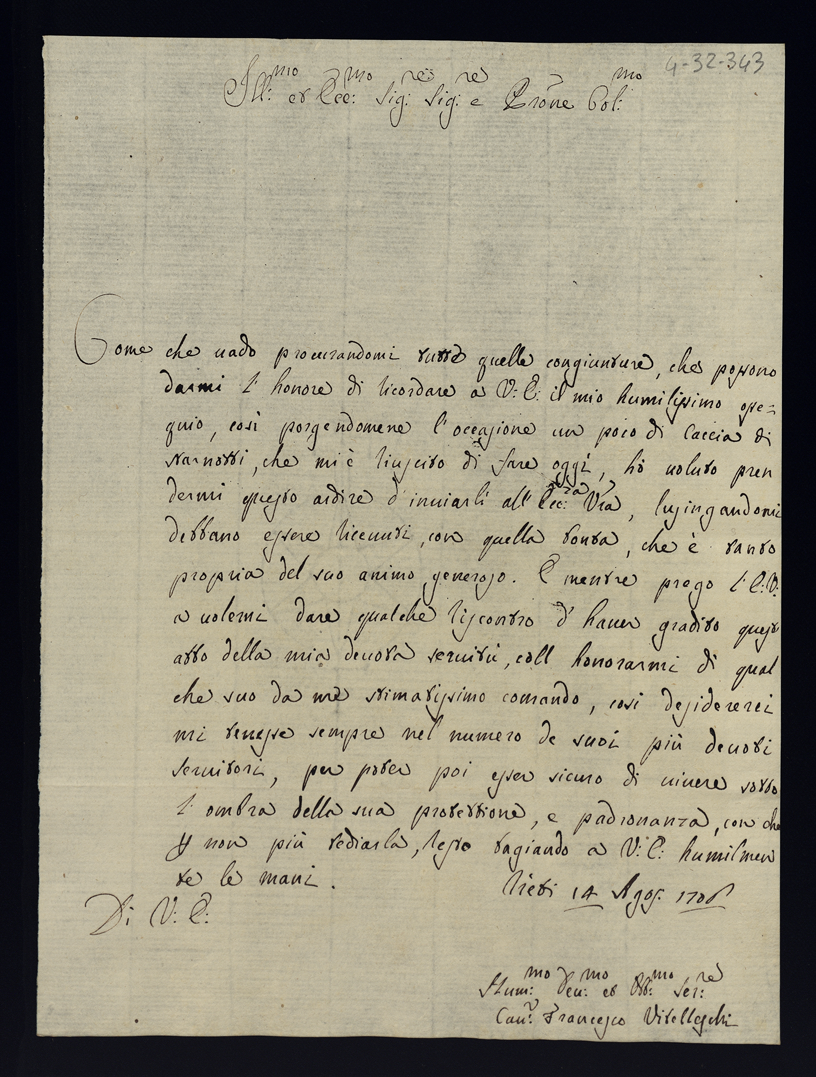 4-32-343
Ill:mo et Ecc:mo Sig:re Sig:re e Prõne Col:mo
Come che uado procurandomi tutte quelle congiunture, che possono
darmi l'honore di ricordare a V: E: il mio humilissimo osse=
quio, così porgendomene l'occasione un poco di Caccia di
starnotti, che mi è riuscito di fare oggi, hò uoluto pren
dermi questo ardire d'inuiarli all'Ecc:za Vra, lusingandomi
debbano essere riceuuti, con quella bontà, che è tanto
propria del suo animo generoso. E mentre prego l'E: V:
a uolermi dare qualche riscontro d'hauer gradito quest'
atto della mia deuota seruitù, coll honorarmi di qual
che suo da me stimatissimo comando, così desidererei
mi tenesse sempre nel numero de suoi più deuoti
seruitori, per poter poi esser sicuro di uiuere sotto
l'ombra della sua protettione, e padronanza, con che
p non più tediarla, resto bagiando a V: E: humilmen
te le mani. Rieti 14 Agos: 1708
Di V: E:
Hum:mo Deu:mo et Obb:mo Ser:re
Cau:r Francesco Vitelleschi